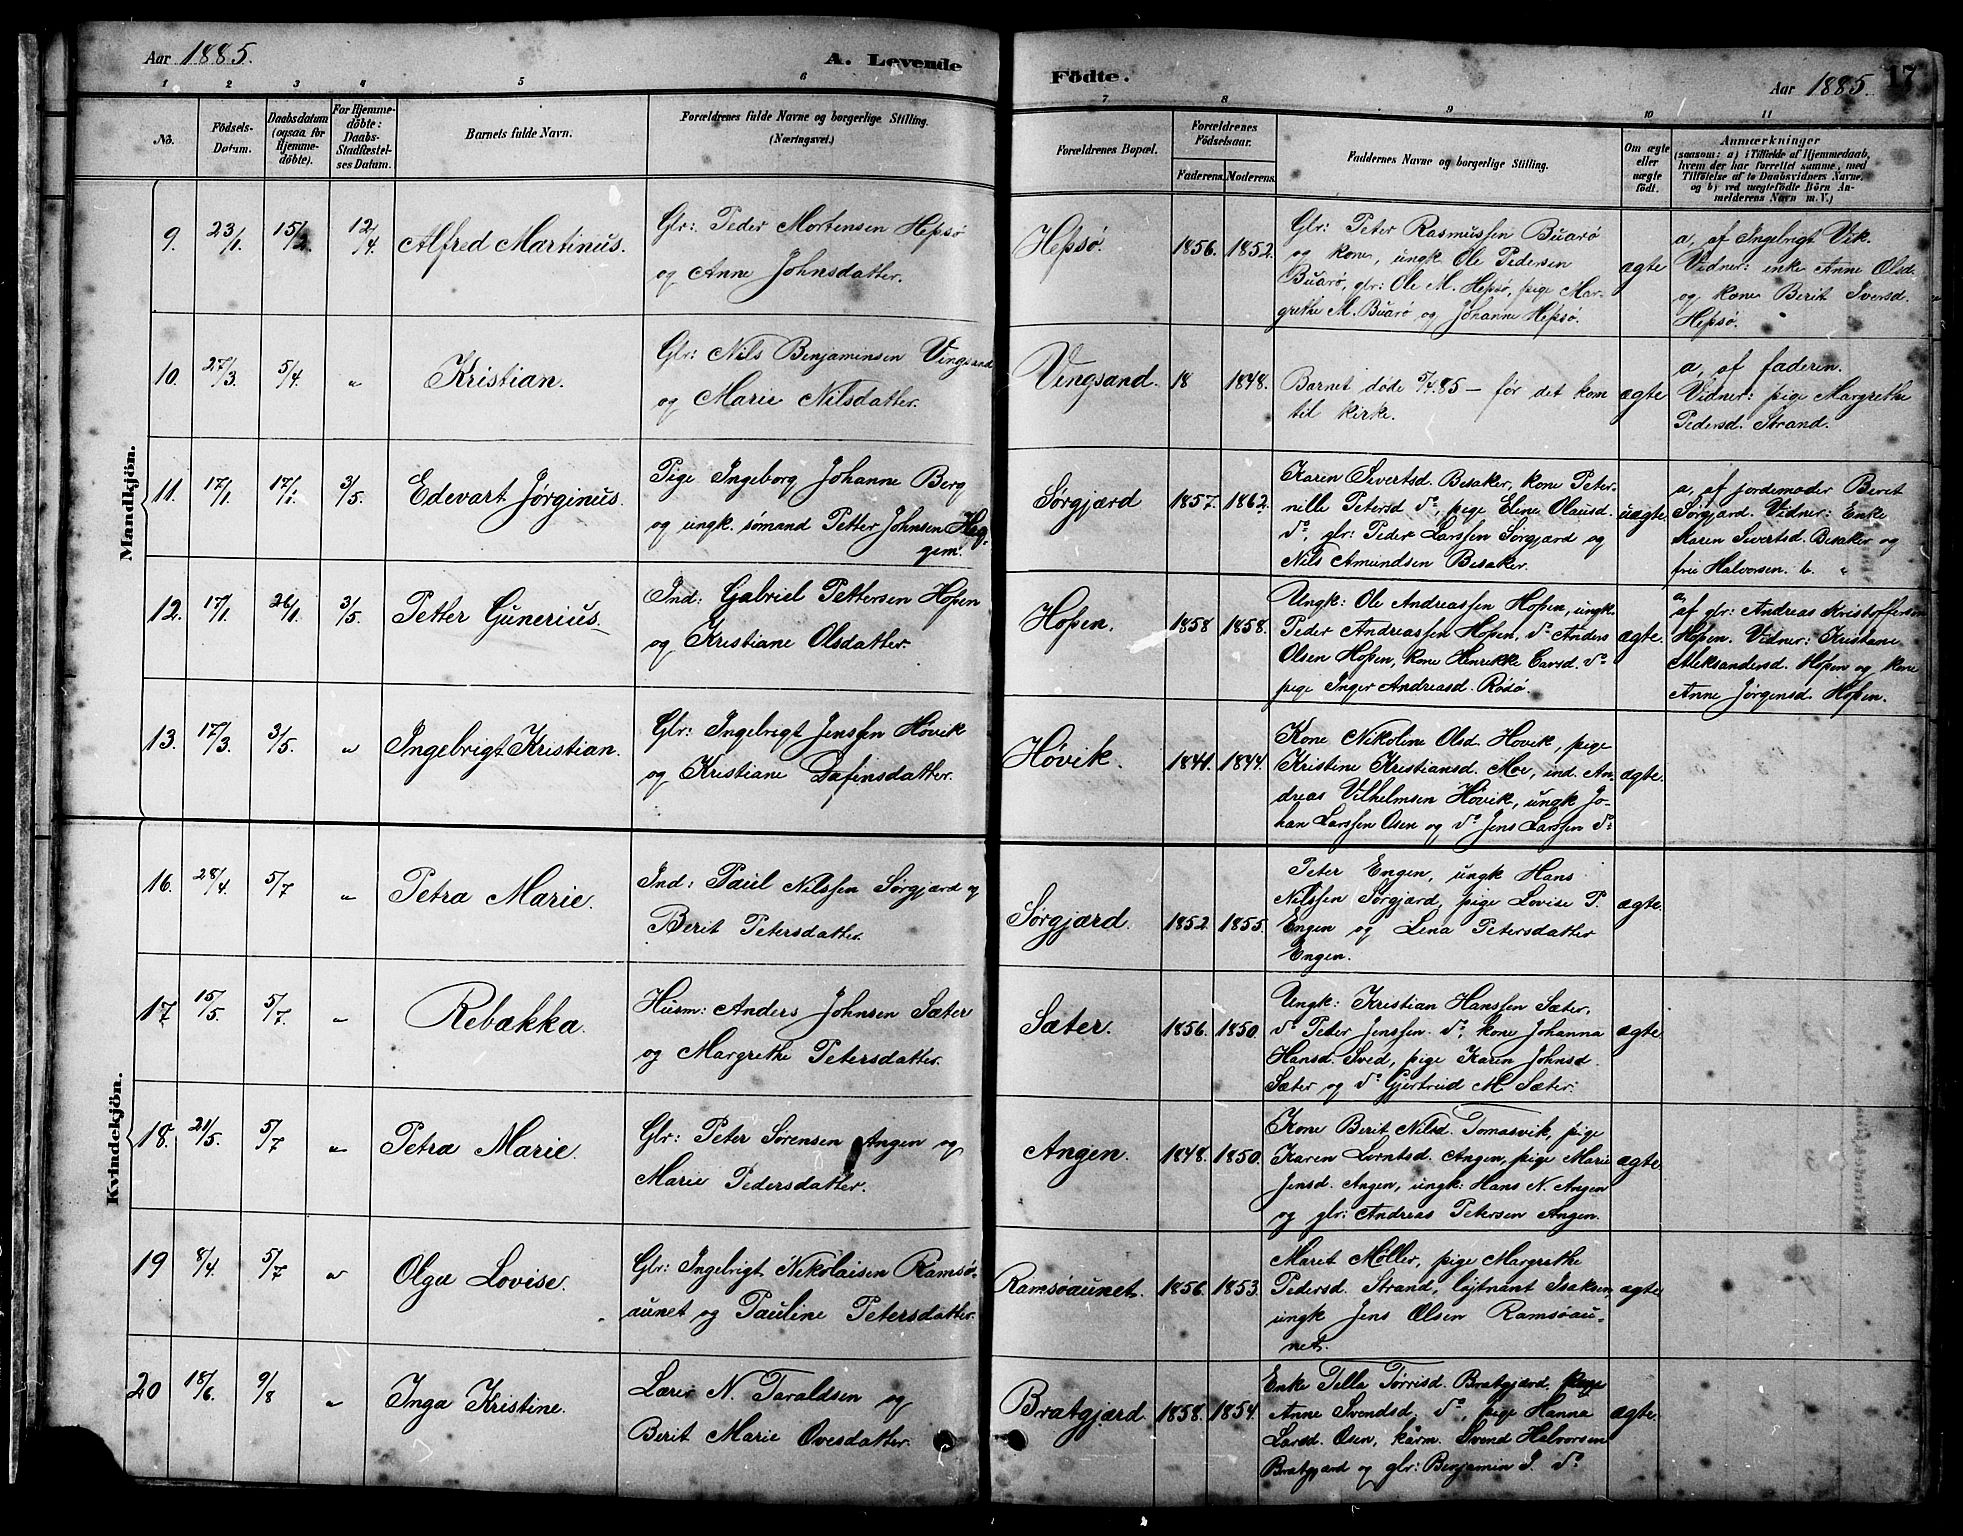 Aar 1885.
A. Levende
Födte.
Aar 1885.
17
1 2 3 4 5 6 7 8 9 10 11
No.
Födsels-
Datum.
Daabsdatum
(ogsaa for
Hjemme-
döbte).
For Hjemme-
döbte:
Daabs-
Stadfæstel-
ses Datum.
Barnets fulde Navn.
Forældrenes fulde Navne og borgerlige Stilling.
(Næringsvei.)
Forældrenes Bopæl.
Forældrenes
Födselsaar.
Faderens. Moderens.
Faddernes Navne og borgerlige Stilling.
Om ægte
eller
uægte
födt.
Anmærkninger
(saasom: a) i Tilfælde af Hjemmedaab,
hvem der har forrettet samme, med
Tilföielse af to Daabsvidners Navne,
og b) ved uægtefödte Börn An-
melderens Navn m. V.)
Mandkjön.
9. 23/1. 15/2. 12/4. Alfred Martinus.
Glr: Peder Mortensen Hepsø
og Anne Johnsdatter.
Hepsø. 1856. 1852.
Glr: Peter Rasmussen Buarø
og kone, ungk. Ole Pedersen
Buarø, glr: Ole M. Hepsø, pige Mar-
grethe M. Buarø og Johanne Hepsø.
ægte
a, af Ingebrigt Vik.
Vidner: enke Anne Olsd.
og kone Berit Iversd.
Hepsø.
10. 27/3. 5/4. " Kristian.
Glr: Nils Benjaminsen Vingsand
og Marie Nilsdatter.
Vingsand. 18 1848.
Barnet døde 5/4 85 — før det kom
til kirke.
ægte
a, af faderen.
Vidner: pige Margrethe
Pedersd. Strand.
11. 17/1. 17/1. 3/5. Edevart Jørginus.
Pige Ingeborg Johanne Berg
og ungk. sømand Petter Johnsen Heg-
gem.
Sørgjærd 1857. 1862.
Karen Sivertsd. Besaker, kone Peter-
nille Petersd do, pige Eline Olausd.
do, glr: Peder Larssen Sørgjærd og
Nils Amundsen Besaker.
uægte
a, af jordemoder Beret
Sørgjærd. Vidner: Enke
Maren Sivertsd. Besaker og
frue Halvorsen b. "
12. 17/1. 26/1. 3/5. Petter Gunerius.
Ind: Gabriel Pettersen Hopen
og Kristiane Olsdatter.
Hopen. 1858 1858.
Ungk: Ole Andreassen Hopen, ungk.
Peder Andreassen Hopen, do Anders
Olsen Hopen, kone Henrikke do
pige Inger Andreasd. Rødø.
ægte.
a, af glr: Andreas Kristoffersen
Hopen. Vidner: Kristiane
Aleksandersd. Hopen og kone
Anne Jørgensd. Hopen.
13. 17/3. 3/5. " Ingebrigt Kristian.
Glr: Ingebrigt Jenssen Høvik
og Kristiane Dafinsdatter.
Høvik. 1841. 1844.
Kone Nikoline Olsd. Høvik, pige
Kristine Kristiansd. Moe, ind. An-
dreas Vilhelmsen Høvik, ungk Jo-
han Larssen Osen og do Jens Larssen do
ægte.
Kvindekjön.
16. 28/4. 5/7 " Petra Marie.
Ind: Paul Nilssen Sørgjærd og
Berit Petersdatter.
Sørgjærd. 1852. 1855.
Peter Engen, ungk Hans
Nilssen Sørgjærd, pige Lovise P.
Engen og Lena Petersdatter
Engen.
ægte.
17 15/5. 5/7. " Rebækka.
Husm: Anders Johnsen Sæter
og Margrethe Petersdatter.
Sæter. 1856. 1850.
Ungk: Kristian Hanssen Sæter,
do Peder Jenssen do, kone Johanna
Hansd. Sved, pige Karen Johnsd
Sæter og do Gjertrud M. Sæter.
ægte
18. 21/5. 5/7 " Petra Marie.
Glr: Peter Sørensen Angen og
Marie Pedersdatter.
Angen. 1848. 1850.
Kone Berit Nilsd. Tomasvik, pige
Karen Lorntsd. Angen, pige Marie
Jensd. Angen, ungk: Hans N. Angen
og glr: Andreas Petersen Angen.
ægte
19 8/4. 5/7 " Olga Lovise.
Glr: Ingebrigt Nikolaisen Ramsø-
aunet og Pauline Petersdatter.
Ramsøaunet. 1856. 1853.
Maret Møller, pige Margrethe
Pedersd. Strand, løjtnant Isaksen
ungk Jens Olsen Ramsøau-
net.
ægte
20 18/6. 9/8 " Inga Kristine.
Lærer N. Taraldsen og
Berit Marie Ovesdatter.
Bratgjærd 1858. 1854.
Enke Tella Tørrisd. Bratgjærd, pige
Anne Svendsd. do, pige Hanna
Larsd. Osen, kårm. Svend Halvorsen
Bratgjærd og glr: Benjamin J. do
ægte.